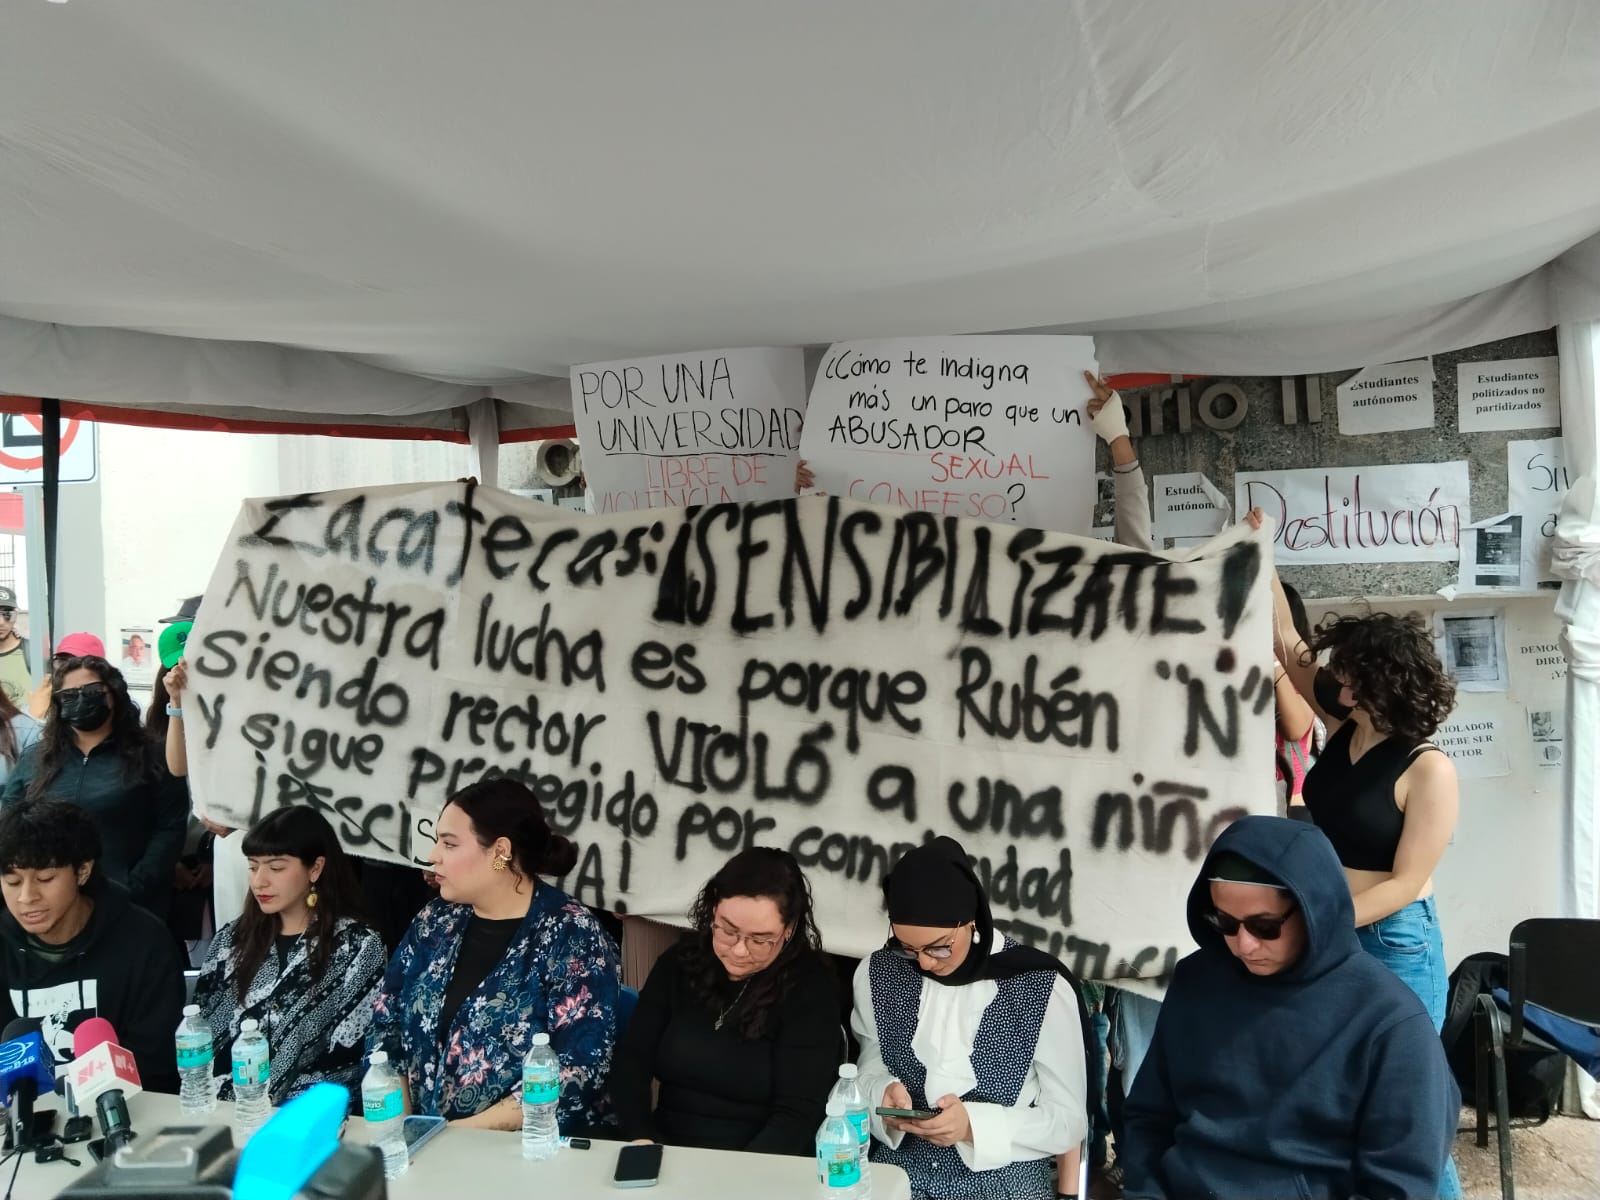 POR UNA
UNIVERSIDAD
LIBRE DE
VIOLENCIA
¿Cómo te indigna
más un paro que un
ABUSADOR
SEXUAL
CONFESO?
Estudiantes
autónomos
Estudiantes
politizados no
partidizados
Destitución
Zacatecas: ¡SENSIBILÍZATE!
Nuestra lucha es porque Rubén "N"
Siendo rector VIOLÓ a una niña
Y sigue protegido por complicidad
VIOLADOR
DEBE SER
N+